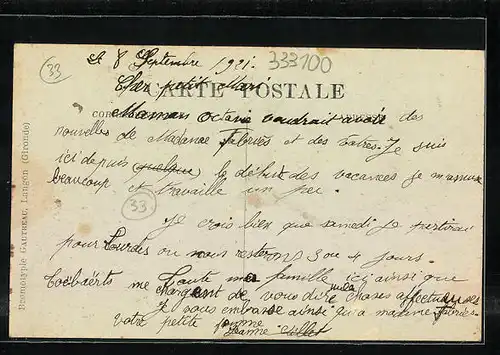 Le 8 Septembre 1921.
333100
33
Cher petit Mari
CARTE POSTALE
COR
Maman Octavie voudrait avoir des
nouvelles de Madame Fabriès et des vôtres. Je suis
ici depuis quelque le début des vacances je m'amuse
beaucoup et travaille un peu.
33
Je crois bien que samedi je partirai
pour Lourdes ou nous resterons 3 ou 4 jours.
Toute ma famille ici ainsi que
me chargent de vous dire mille choses affectueuses
Je vous embrasse ainsi que madame Fabriès.
votre petite femme
Jeanne
Bromotypie GAUTREAU, Langon (Gironde)